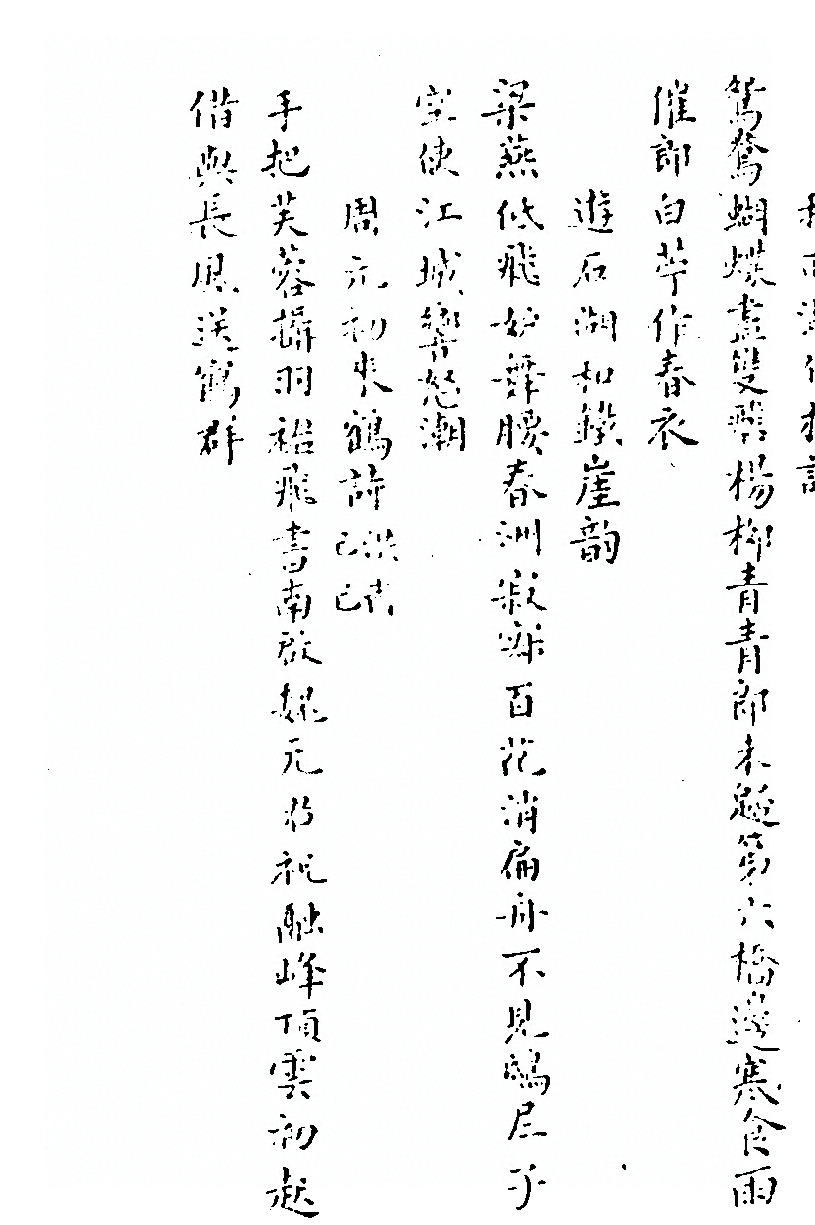 和西湖竹枝詞
鴛鴦蝴蝶盡雙飛楊柳青青郎未歸第六橋邊寒食雨
催郎白苧作春衣
遊石湖和鐵崖韵
梁燕低飛妒舞腰春洲寂寂百花消扁舟不見鴟尼子
空使江城響怒潮
周元初来鶴詩洪武己巳
手把芙蓉攝羽裙飛書南啟魏元君祝融峰頂雲初起
借與長風送鶴群